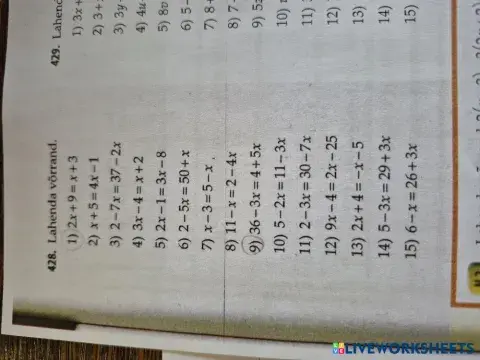 428. Lahenda võrrand.
1) 2x + 9 = x + 3
2) x + 5 = 4x – 1
3) 2 – 7x = 37 – 2x
4) 3x – 4 = x + 2
5) 2x – 1 = 3x – 8
6) 2 – 5x = 50 + x
7) x – 3 = 5 – x.
8) 11 – x = 2 – 4x
9) 36 – 3x = 4 + 5x
10) 5 – 2x = 11 – 3x
11) 2 – 3x = 30 – 7x
12) 9x – 4 = 2x – 25
13) 2x + 4 = –x – 5
14) 5 – 3x = 29 + 3x
15) 6 – x = 26 + 3x
429.
1) 3x +
2) 3 +
3) 3y
4) 4u
5) 8v
6) 5 –
7) 8 +
8) 7
9) 5
10)
11)
12)
13)
14)
15)
LIVEWORKSHEETS